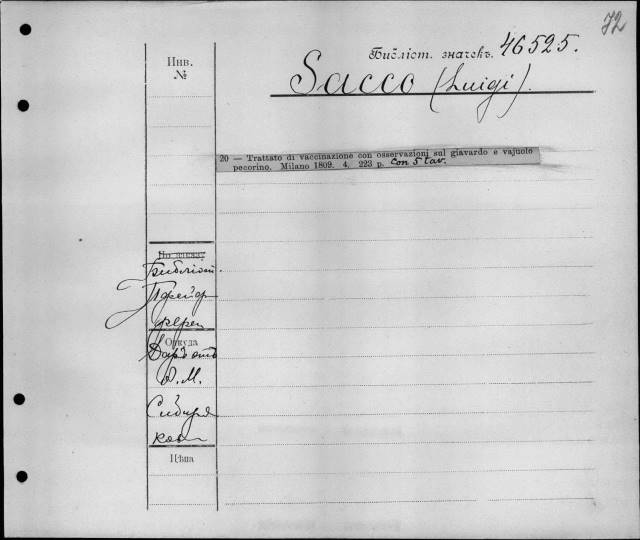 72
Библіот. значекъ. 46525.
Инв.
№
Sacco (Luigi).
20 — Trattato di vaccinazione con osservazioni sul giavardo e vajuolo
pecorino. Milano 1809. 4. 223 p. con 5 tav.
По заказу
Библіот.
Пфейф
Откуда
Даръ отъ
А. М.
Сибиря
кова
Цѣна